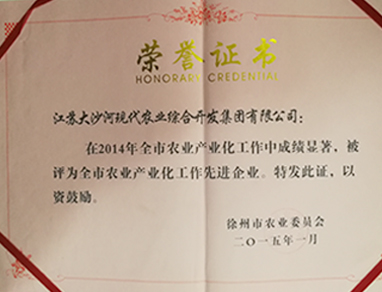 荣誉证书
HONORARY CREDENTIAL
江苏大沙河现代农业综合开发集团有限公司:
在2014年全市农业产业化工作中成绩显著，被
评为全市农业产业化工作先进企业。特发此证，以
资鼓励。
徐州市农业委员会
二〇一五年一月